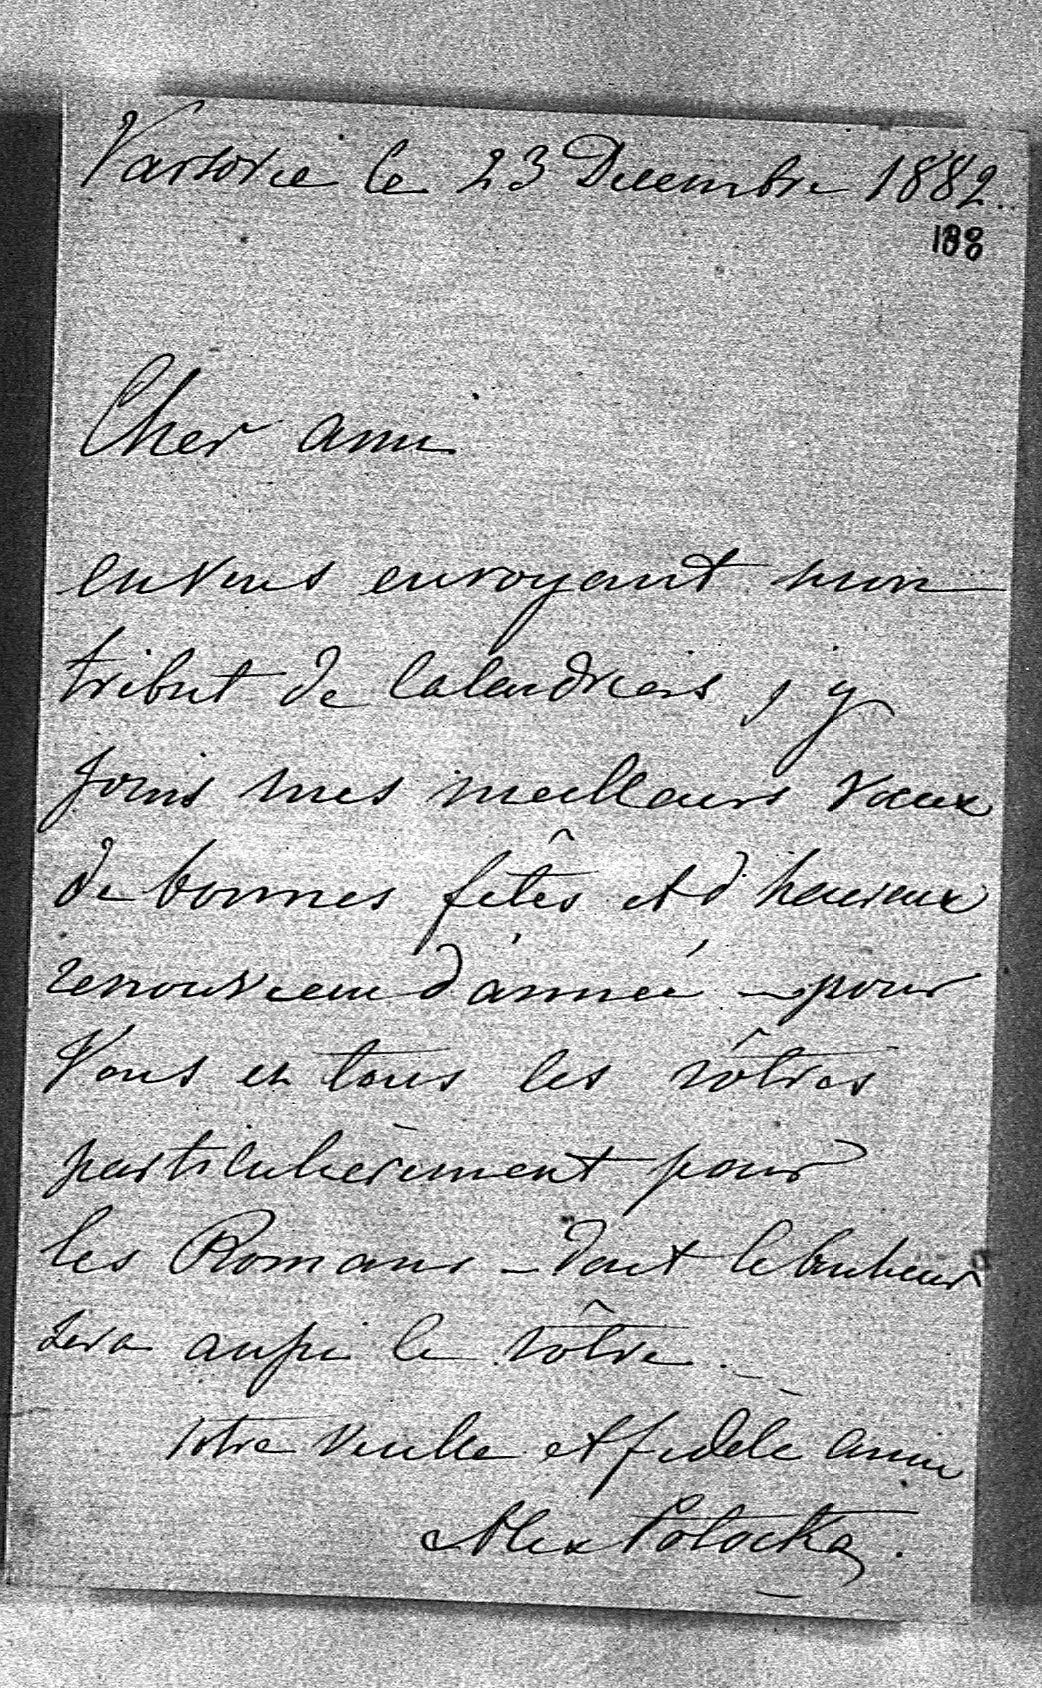 Varsovie le 23 Decembre 1882.
188
Cher ami
en vous envoyant mon
tribut de Calendriers, j'y
joins mes meilleurs vœux
de bonnes fêtes et d'heureux
renouveau d'année – pour
Vous et tous les vôtres
particulièrement pour
les Romans – dont le bonheur
sera aussi le vôtre.
votre vieille et fidele amie
Alex Potocka.